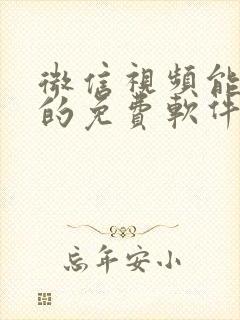 微信視頻能
的免費軟件
忘年安小